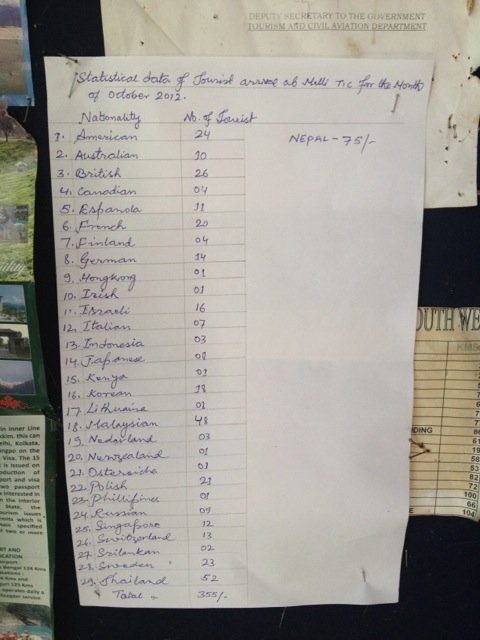 DEPUTY SECRETARY TO THE GOVERNMENT
TOURISM AND CIVIL AVIATION DEPARTMENT
Statistical data of Tourist arrival at Melli T.I.C for the Month
of October 2012.
Nationality No. of Tourist
1. American 24
NEPAL - 75/-
2. Australian 10
3. British 26
4. Canadian 04
5. Espanola 11
6. French 20
7. Finland 04
8. German 14
9. Hongkong 01
10. Irish 01
11. Israeli 16
12. Italian 07
13. Indonesia 03
14. Japanese
15. Kenya 01
16. Korean 18
17. Lithuaine 01
18. Malaysian 48
19. Nedarland 03
20. Newzealand 01
21. Ostereiche 01
22. Polish 21
23. Phillifines 01
24. Russian 09
25. Singapore 12
26. Switzerland 13
27. Srilankan 02
28. Sweden 23
29. Thailand 52
Total = 355/-
OUTH WE
KMS
DING
82
72
100
66
E 104
in Inner Line
kkim. this can
elhi, Kolkata,
Visa. The 15
t is issued on
oduction of
port and visa
wo passport
s interested in
the interior
State, the
ourism issues
mits which is
ain specified
f two or more
RT AND
CATION